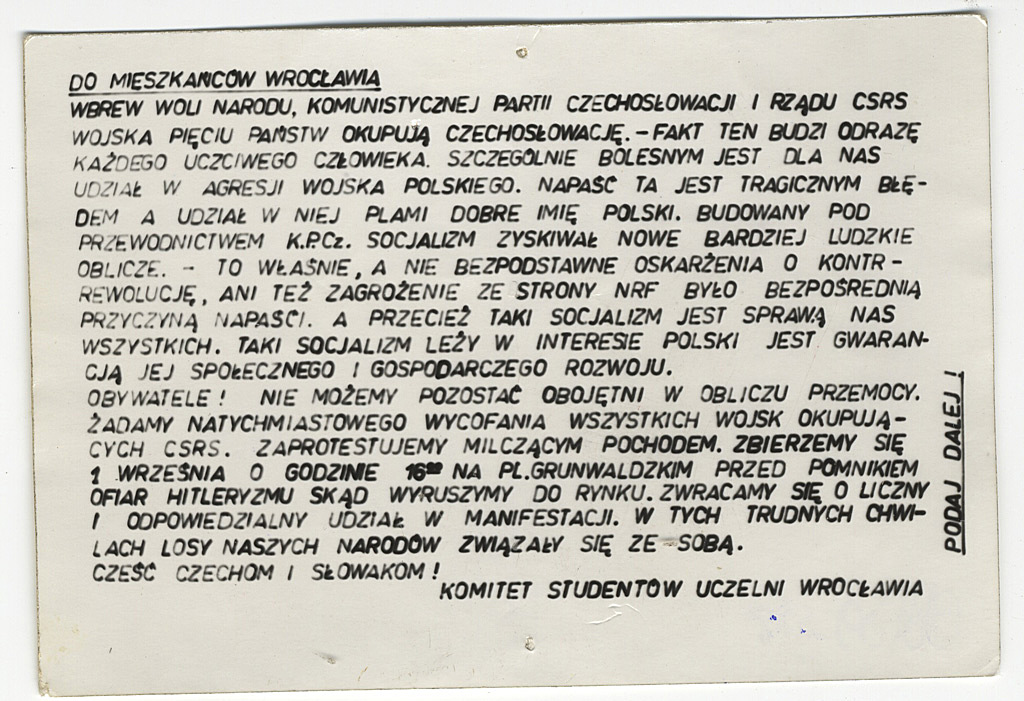 DO MIESZKAŃCÓW WROCŁAWIA
WBREW WOLI NARODU, KOMUNISTYCZNEJ PARTII CZECHOSŁOWACJI I RZĄDU CSRS
WOJSKA PIĘCIU PAŃSTW OKUPUJĄ CZECHOSŁOWACJĘ. - FAKT TEN BUDZI ODRAZĘ
KAŻDEGO UCZCIWEGO CZŁOWIEKA. SZCZEGÓLNIE BOLESNYM JEST DLA NAS
UDZIAŁ W AGRESJI WOJSKA POLSKIEGO. NAPAŚĆ TA JEST TRAGICZNYM BŁĘ-
DEM A UDZIAŁ W NIEJ PLAMI DOBRE IMIĘ POLSKI. BUDOWANY POD
PRZEWODNICTWEM K.P.Cz. SOCJALIZM ZYSKIWAŁ NOWE BARDZIEJ LUDZKIE
OBLICZE. - TO WŁAŚNIE, A NIE BEZPODSTAWNE OSKARŻENIA O KONTR-
REWOLUCJĘ, ANI TEŻ ZAGROŻENIE ZE STRONY NRF BYŁO BEZPOŚREDNIĄ
PRZYCZYNĄ NAPAŚCI. A PRZECIEŻ TAKI SOCJALIZM JEST SPRAWĄ NAS
WSZYSTKICH. TAKI SOCJALIZM LEŻY W INTERESIE POLSKI JEST GWARAN-
CJĄ JEJ SPOŁECZNEGO I GOSPODARCZEGO ROZWOJU.
OBYWATELE! NIE MOŻEMY POZOSTAĆ OBOJĘTNI W OBLICZU PRZEMOCY.
ŻĄDAMY NATYCHMIASTOWEGO WYCOFANIA WSZYSTKICH WOJSK OKUPUJĄ-
CYCH CSRS. ZAPROTESTUJEMY MILCZĄCYM POCHODEM. ZBIERZEMY SIĘ
1 WRZEŚNIA O GODZINIE 16⁰⁰ NA PL. GRUNWALDZKIM PRZED POMNIKIEM
OFIAR HITLERYZMU SKĄD WYRUSZYMY DO RYNKU. ZWRACAMY SIĘ O LICZNY
I ODPOWIEDZIALNY UDZIAŁ W MANIFESTACJI. W TYCH TRUDNYCH CHWI-
LACH LOSY NASZYCH NARODÓW ZWIĄZAŁY SIĘ ZE SOBĄ.
CZEŚĆ CZECHOM I SŁOWAKOM!
KOMITET STUDENTÓW UCZELNI WROCŁAWIA
PODAJ DALEJ!